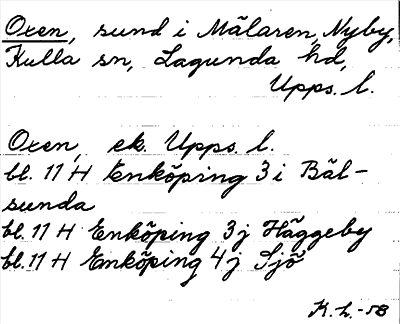 Oxen, sund i Mälaren, Nyby,
Kulla sn, Lagunda hd,
Upps. l.
Oxen, ek. Upps. l.
bl. 11 H Enköping 3 i Bäl-
sunda
bl. 11 H Enköping 3 j Häggeby
bl. 11 H Enköping 4 j Sjö
K. L. -58